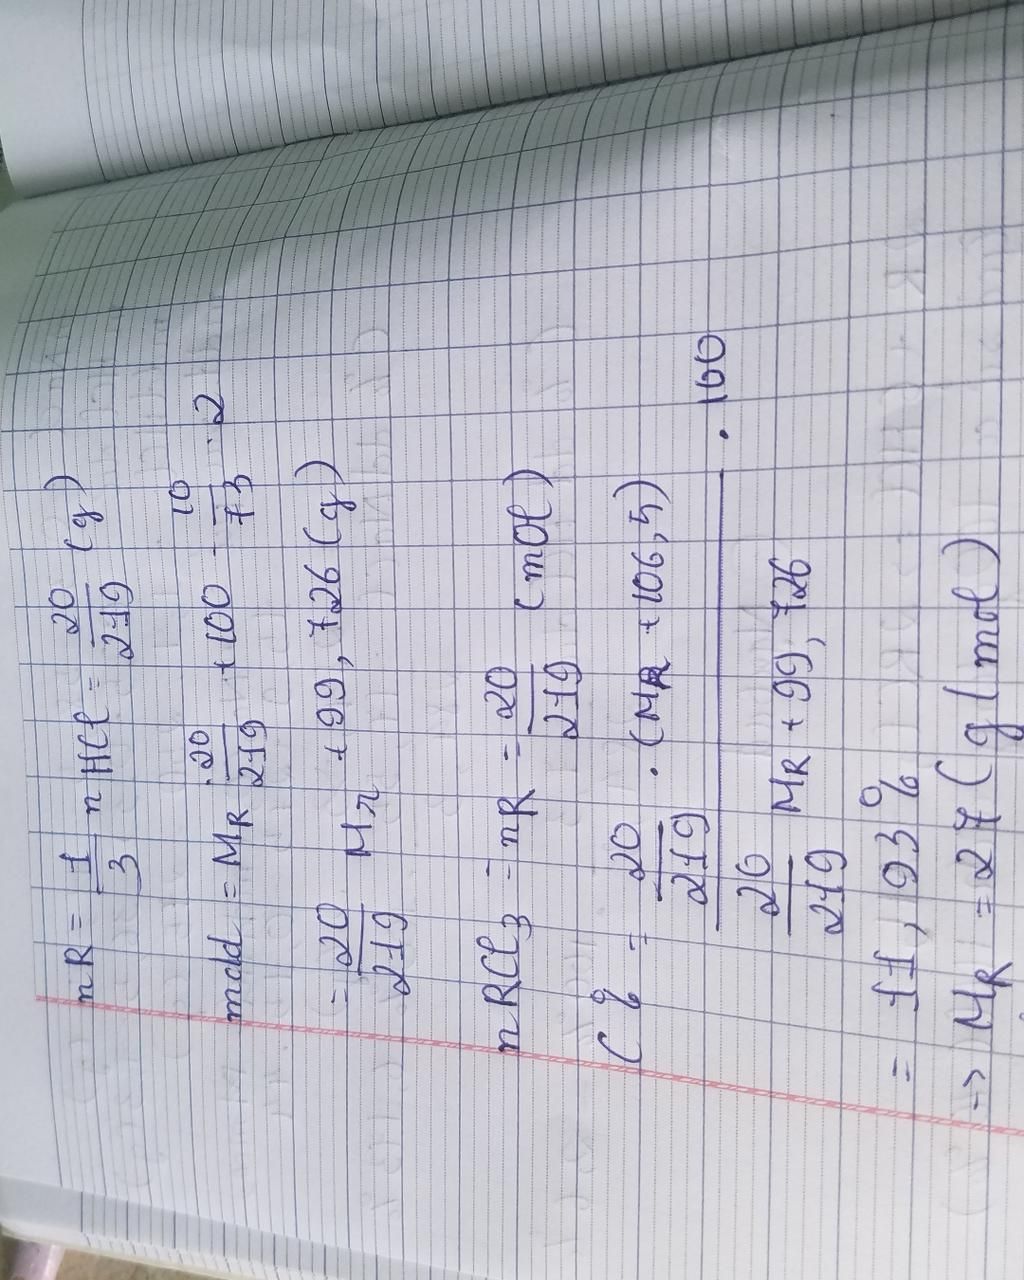 nR = 1/3 nHCl = 20/219 (g)
mdd = MR . 20/219 + 100 - 10/73 . 2
= 20/219 Mr + 99,726 (g)
nRCl3 = nR = 20/219 (mol)
C% = (20/219 . (MR + 106,5)) / (20/219 MR + 99,726) . 100
= 11,93%
-> MR = 27 (g/mol)